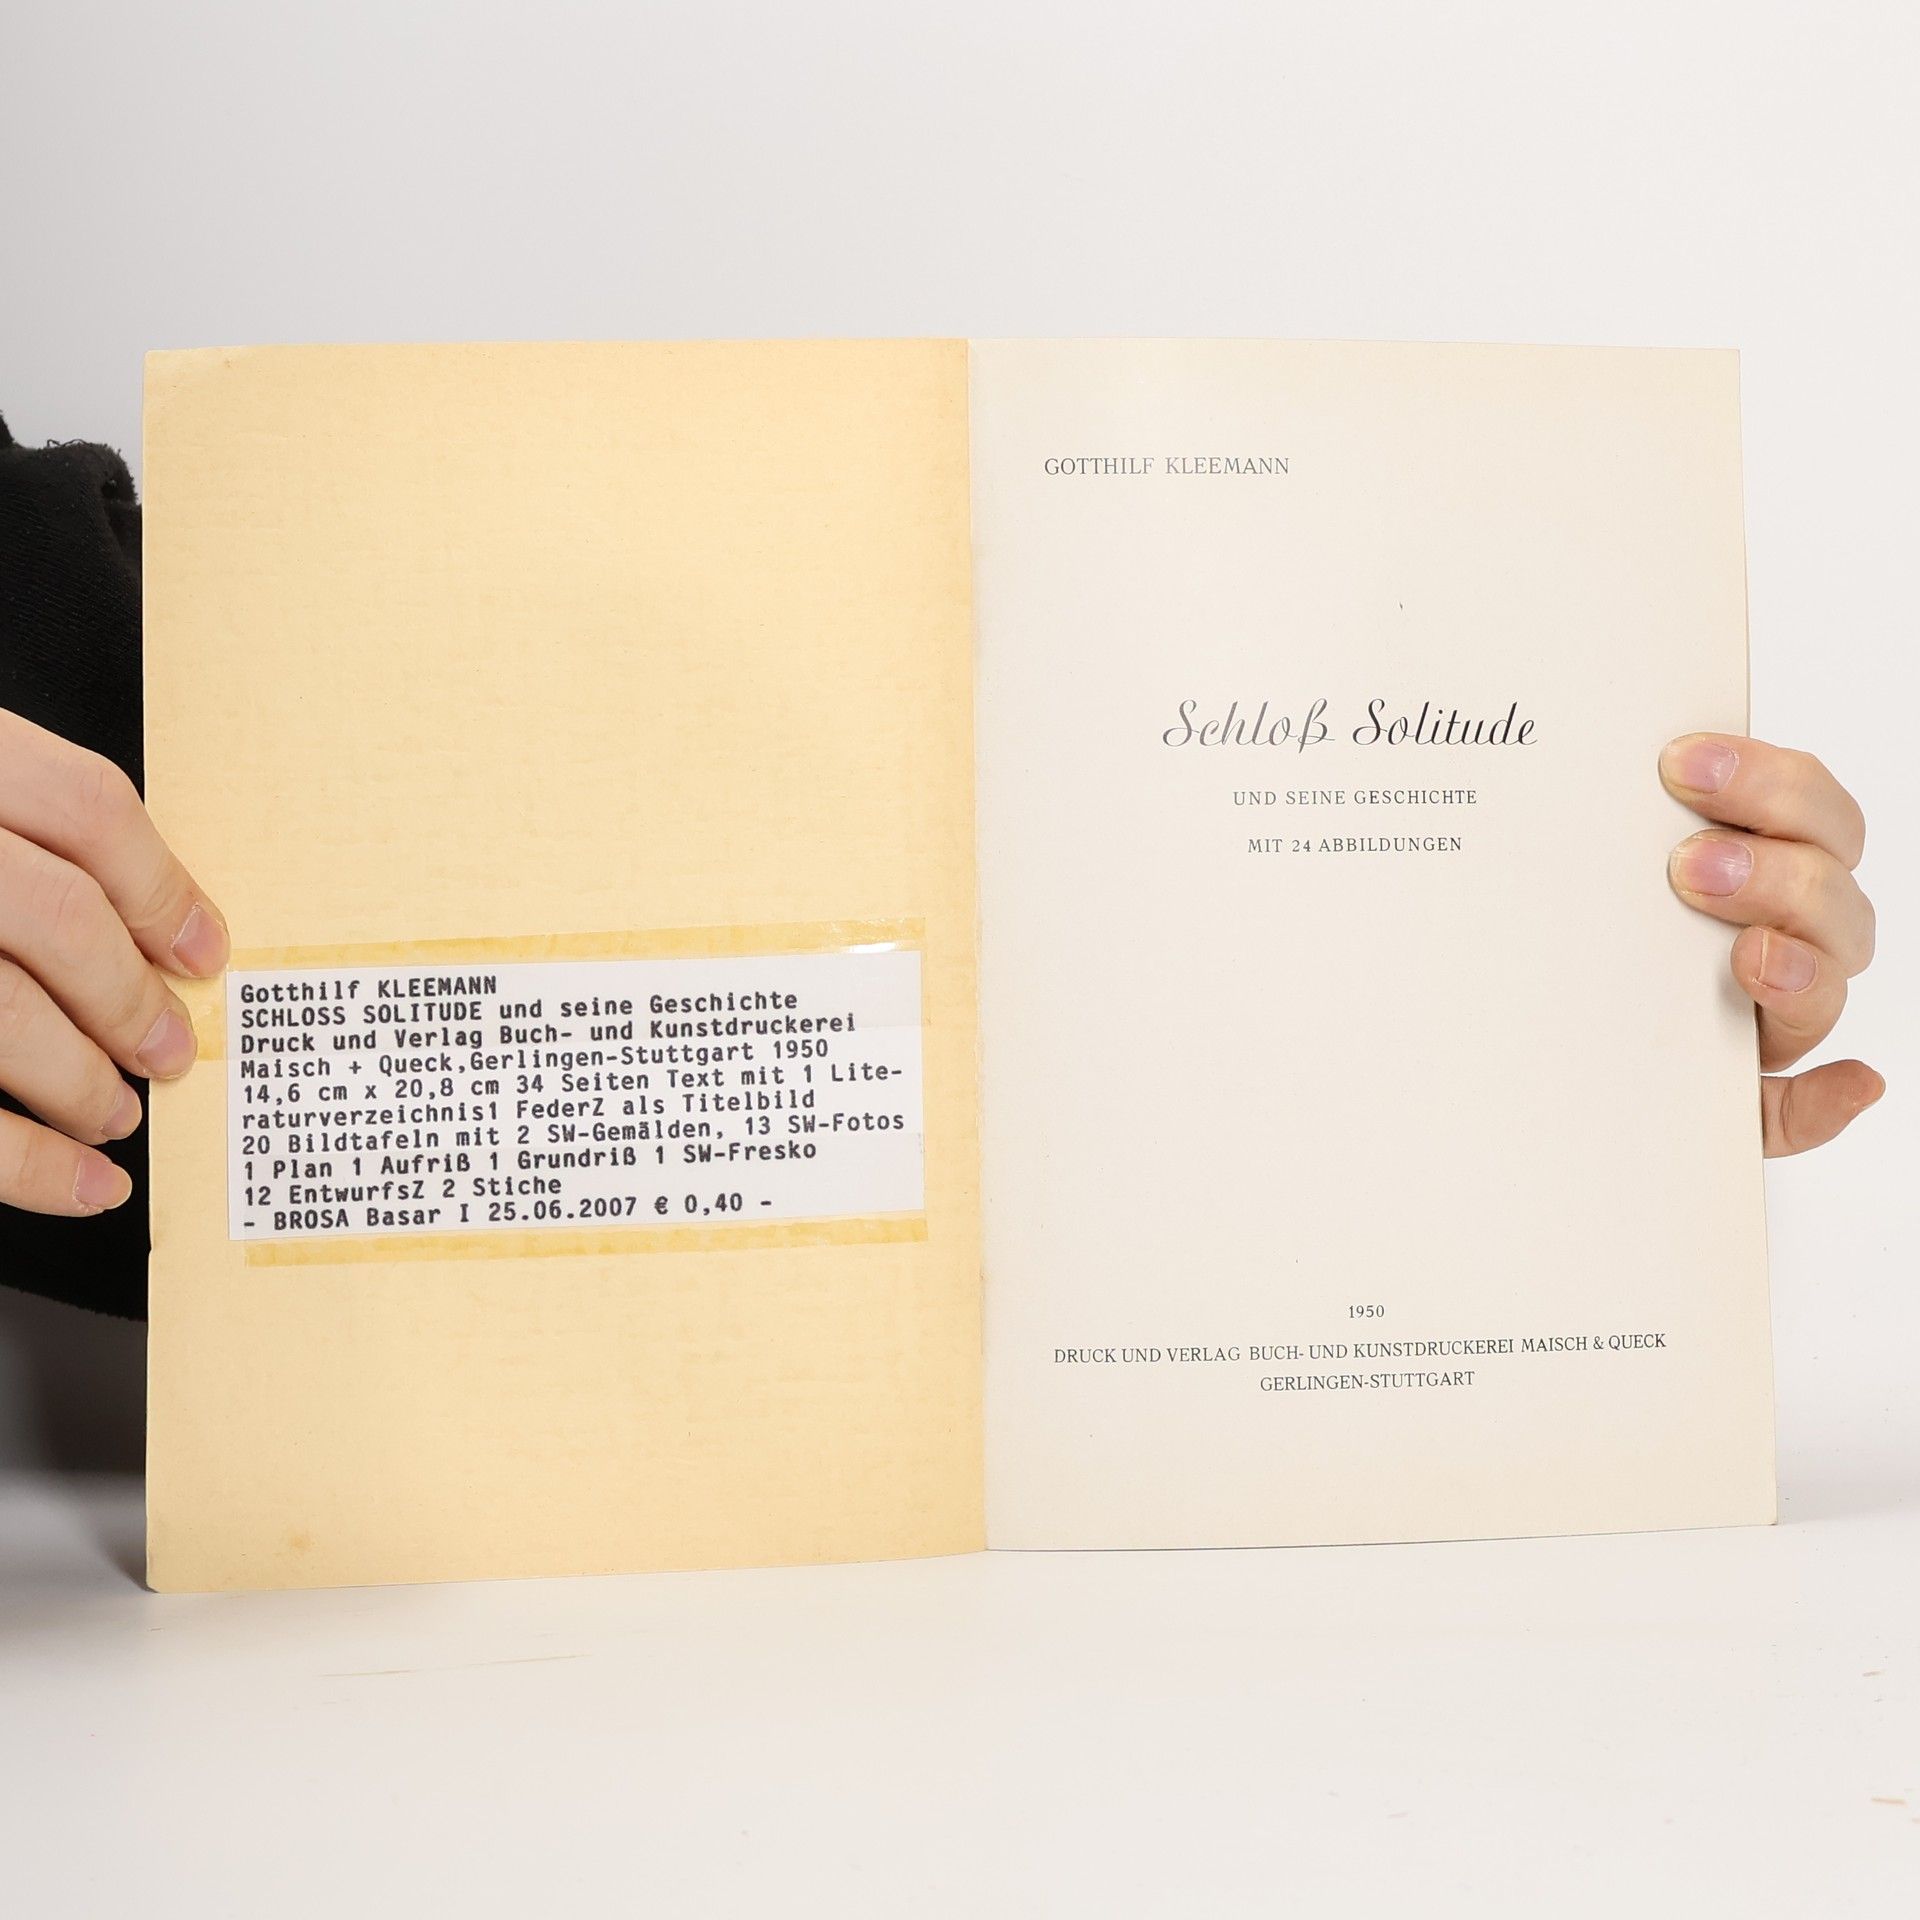 Gotthilf KLEEMANN
SCHLOSS SOLITUDE und seine Geschichte
Druck und Verlag Buch- und Kunstdruckerei
Maisch + Queck,Gerlingen-Stuttgart 1950
14,6 cm x 20,8 cm 34 Seiten Text mit 1 Lite-
raturverzeichnis1 FederZ als Titelbild
20 Bildtafeln mit 2 SW-Gemälden, 13 SW-Fotos
1 Plan 1 Aufriß 1 Grundriß 1 SW-Fresko
12 EntwurfsZ 2 Stiche
- BROSA Basar I 25.06.2007 € 0,40 -
GOTTHILF KLEEMANN
Schloß Solitude
UND SEINE GESCHICHTE
MIT 24 ABBILDUNGEN
1950
DRUCK UND VERLAG BUCH- UND KUNSTDRUCKEREI MAISCH & QUECK
GERLINGEN-STUTTGART